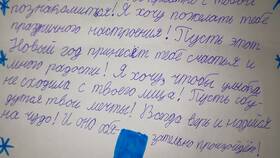 познакомиться! Я хочу пожелать тебе
праздничного настроения! Пусть этот
Новый год принесёт тебе счастья и
много радости! Я хочу, чтобы улыбка
не сходила с твоего лица! Пусть сбу-
дутся твои мечты! Всегда верь и надейся
на чудо! И оно обя-
зательно произойдёт!